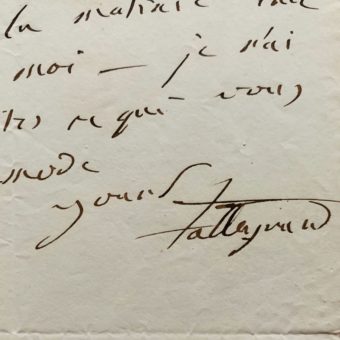 la matinée
moi — je n'ai
ce qui vous
mode
yours Talleyrand